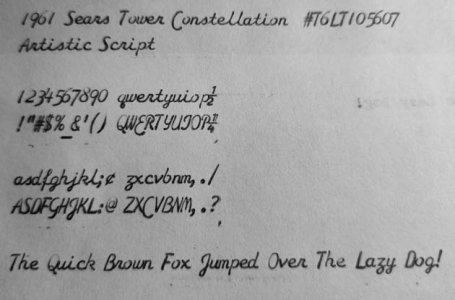 1961 Sears Tower Constellation #T6LT105607
Artistic Script
1234567890 qwertyuiop½
!"#$%_&'() QWERTYUIOP¼
asdfghjkl;¢ zxcvbnm,./
ASDFGHJKL:@ ZXCVBNM,.?
The Quick Brown Fox Jumped Over The Lazy Dog!